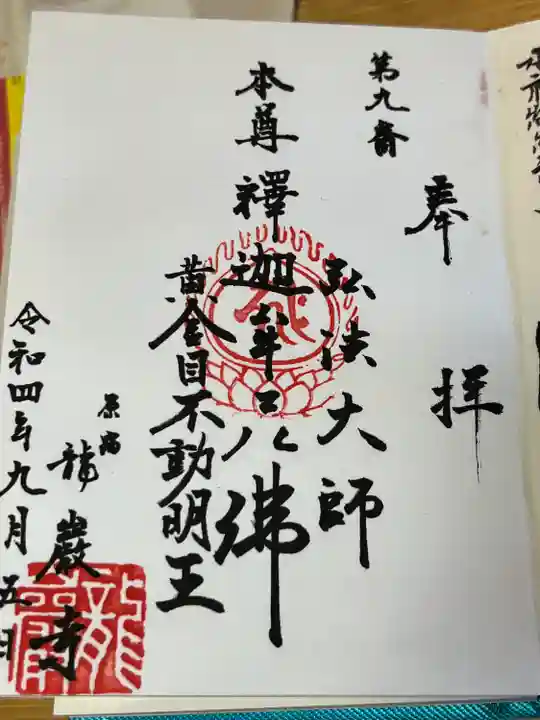 奉拝
第九番
弘法大師
本尊 釋迦牟尼佛
黄金目不動明王
原宿
龍巖寺
令和四年九月五日
龍巖